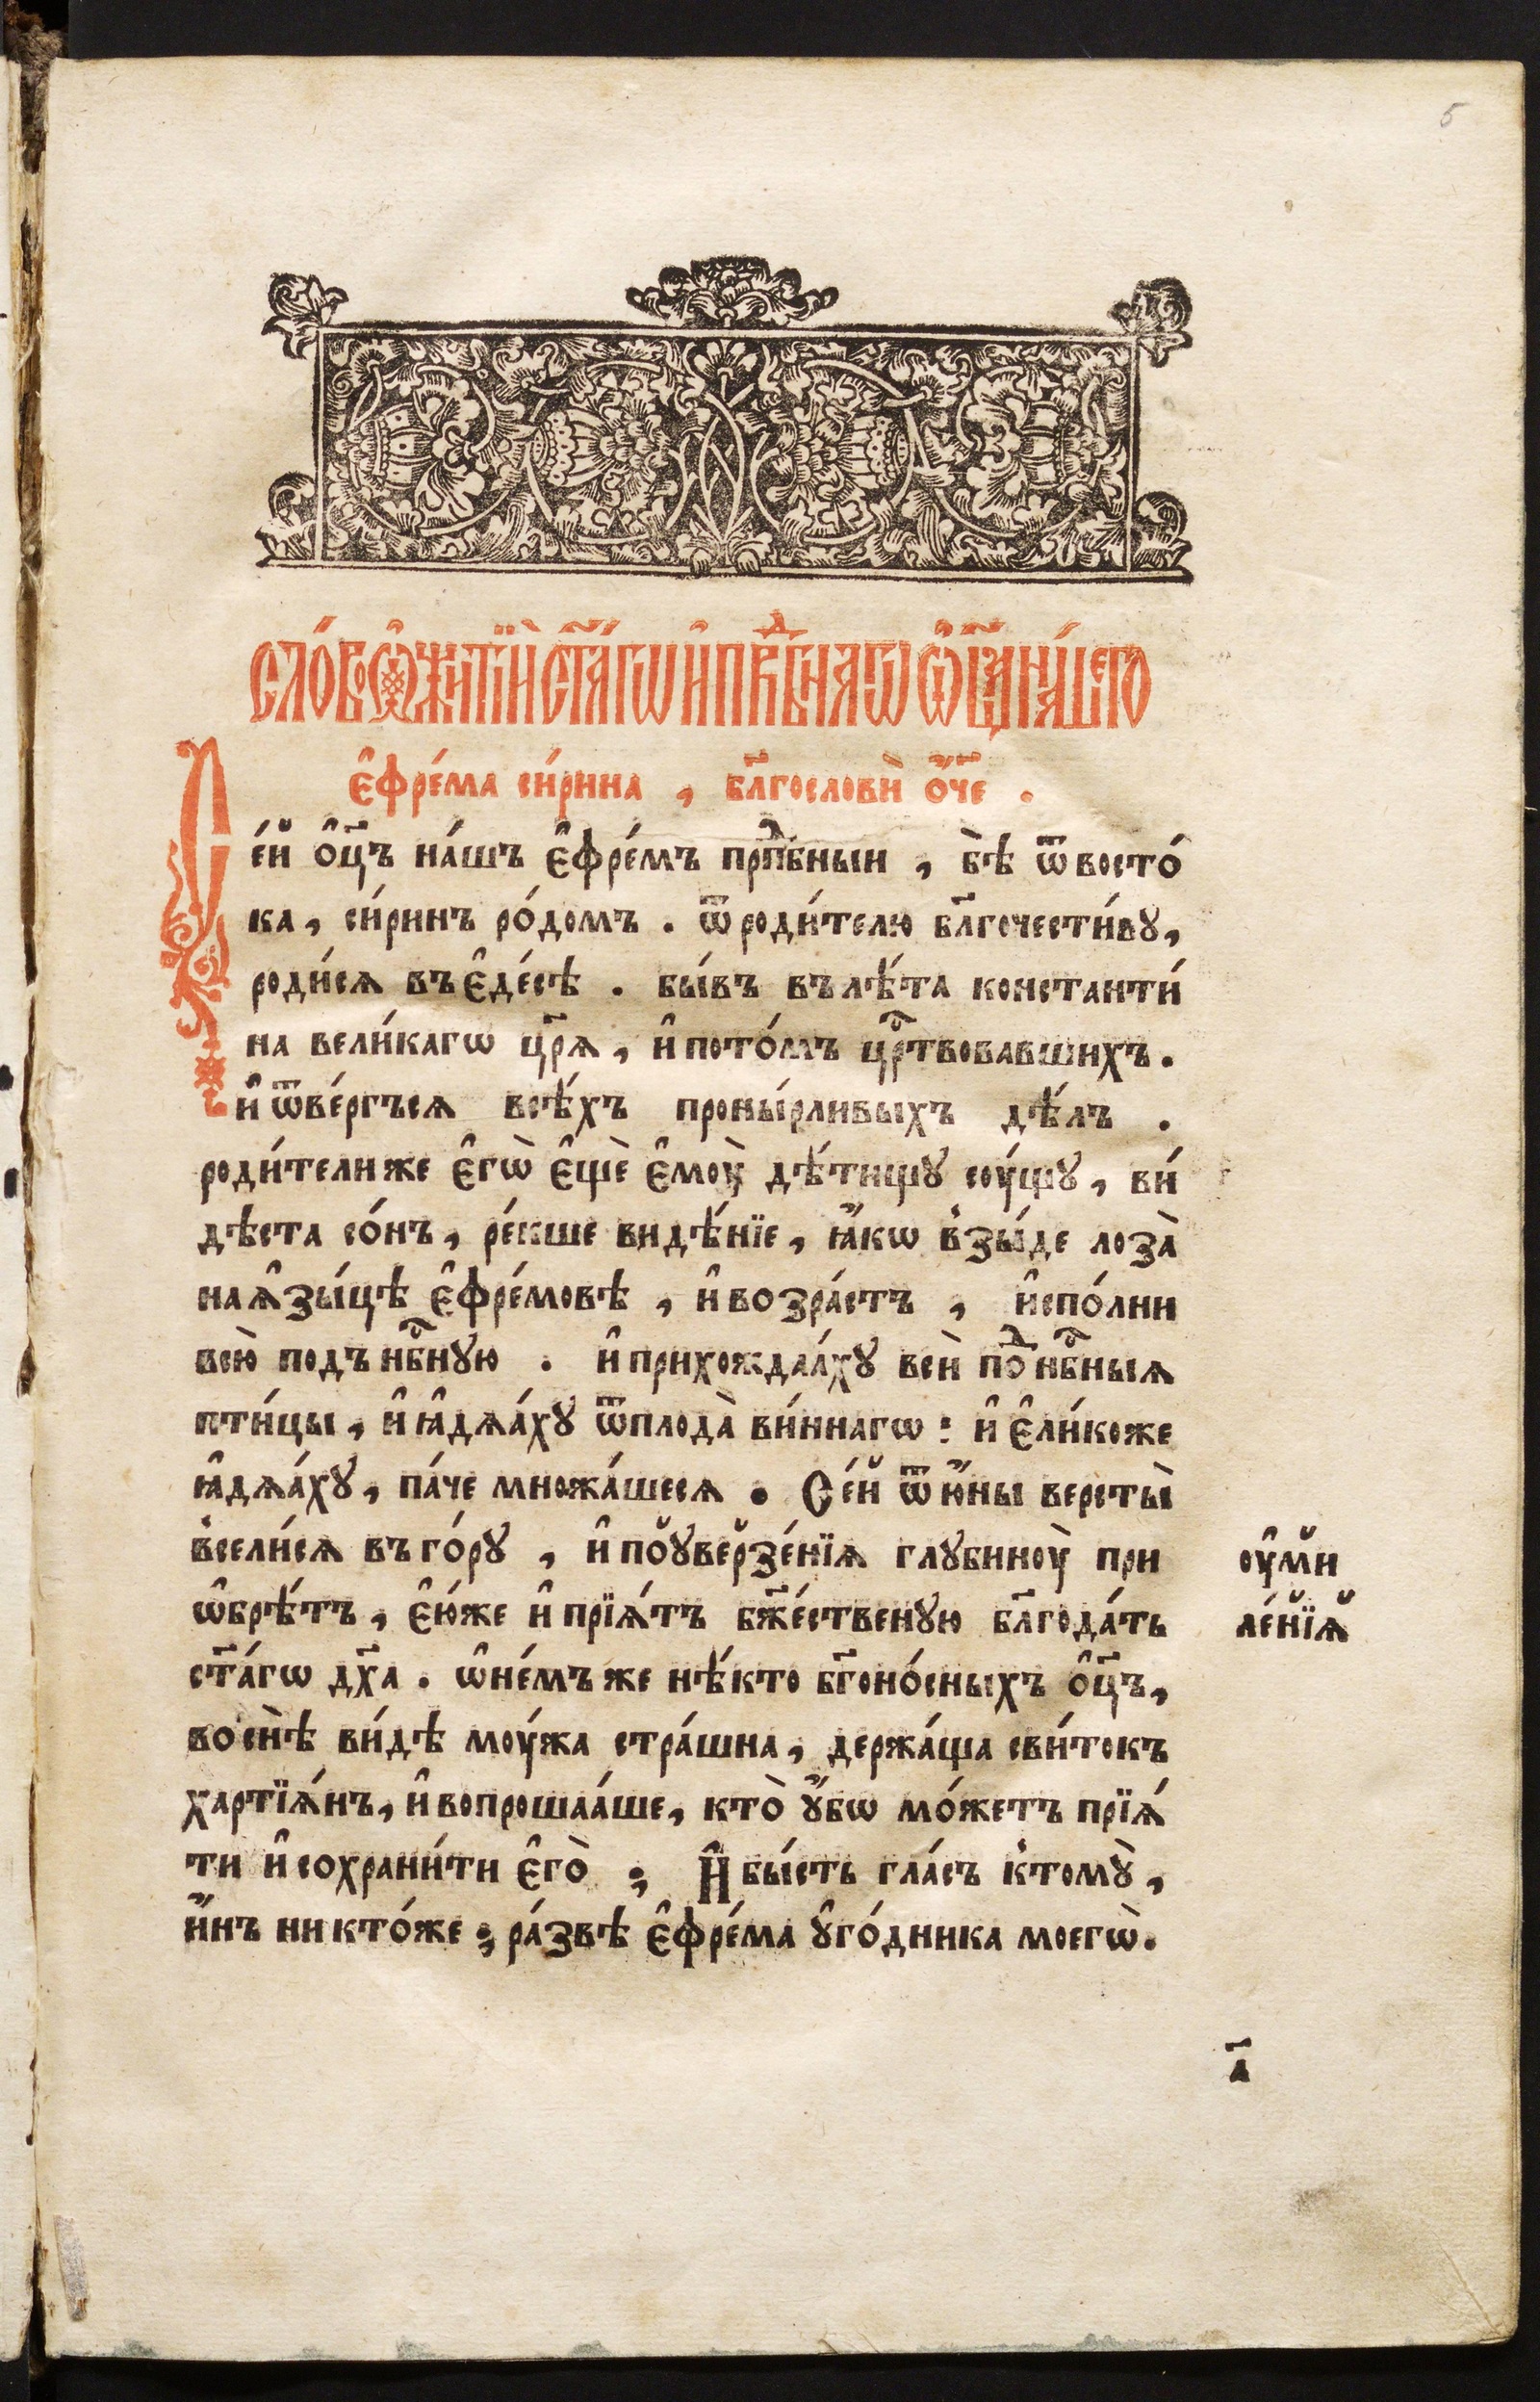 5
сло́во ѡ҆ житїѝ ст҃а́гѡ и҆ прпⷣбнагѡ ѻ҆ц҃а на́шегѡ
є҆фре́ма си́рина , бл҃гословѝ ѻ҆́ч҃е .
Се́й ѻ҆ц҃ъ на́шъ є҆фре́мъ прпⷣбныи , бѣ̀ ѿ восто́
ка , си́ринъ ро́домъ . ѿ роди́телю бл҃гочести́вꙋ ,
роди́сѧ въ є҆де́сѣ . бы́въ въ лѣ́та константи́
на вели́кагѡ цр҃ѧ , и҆ пото́мъ црⷭ҇твовавшихъ .
и҆ ѿве́ргъсѧ всѣ́хъ проны́рливыхъ дѣ́лъ .
роди́тели же є҆гѡ̀ є҆щѐ є҆моу̀ дѣ́тищꙋ соу́щꙋ , ви́
дѣста со́нъ , ре́кше видѣ́нїе , ꙗ҆́кѡ взы́де лоза̀
на ѧ҆зы́цѣ є҆фре́мовѣ , и҆ возра́стъ , и҆спо́лни
всю̀ подъ нбⷭ҇нꙋю . и҆ прихождаа́хꙋ всѝ поⷣ нбⷭ҇ныѧ
пти́цы , и҆ ꙗ҆дѧа́хꙋ ѿ плода̀ ви́ннагѡ : и҆ є҆ли́коже
ꙗ҆дѧа́хꙋ , па́че множа́шесѧ . Се́й ѿ ю҆́ны версты̀
всели́сѧ въ го́рꙋ , и҆ поꙋверзе́нїѧ глꙋбиноу̀ при
ѡ҆брѣ́тъ , є҆ю́же и҆ прїѧ́тъ бж҃е́ственꙋю бл҃года́ть
ст҃а́гѡ дх҃а . ѡ҆ не́мъ же нѣ́кто бг҃оно́сныхъ ѻ҆ц҃ъ ,
во снѣ̀ ви́дѣ моу́жа стра́шна , держа́ща сви́токъ
хартїѧ́нъ , и҆ вопрошаа́ше , кто̀ ᲂу҆́бѡ мо́жетъ прїѧ́
ти и҆ сохрани́ти є҆го̀ ; И҆ бы́сть гла́съ к томꙋ̀ ,
и҆́нъ никто́же ; ра́звѣ є҆фре́ма ᲂу҆го́дника моегѡ̀ .
оу҆ми
ле́нїѧ
а҃